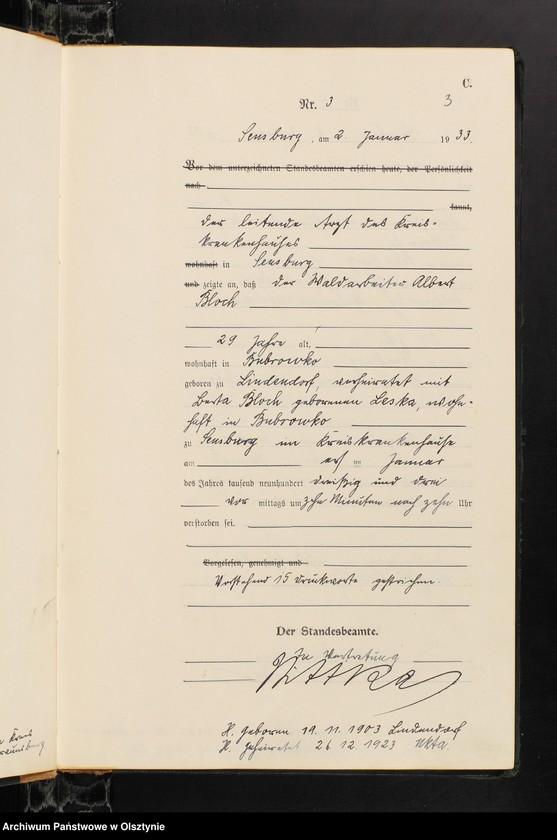 C.
Nr. 3
3
Sensburg, am 2. Januar 1933.
Vor dem unterzeichneten Standesbeamten erschien heute, der Persönlichkeit
nach
kannt,
der leitende Arzt des Kreis-
krankenhauses
wohnhaft in Sensburg
und zeigte an, daß der Waldarbeiter Albert
Bloch
29 Jahre alt,
wohnhaft in Bubrowko
geboren zu Lindendorf, verheiratet mit
Berta Bloch geborenen Leska, wohn-
haft in Bubrowko
zu Sensburg im Kreiskrankenhause
am ersten Januar
des Jahres tausend neunhundert dreißig und drei
vor mittags um zehn Minuten nach zehn Uhr
verstorben sei.
Vorgelesen, genehmigt und
Vorstehend 15 Druckworte gestrichen.
Der Standesbeamte.
In Vertretung
H. geboren 19. 11. 1903 Lindendorf
H. geheiratet 26 12 1923
Kreis
Archiwum Państwowe w Olsztynie